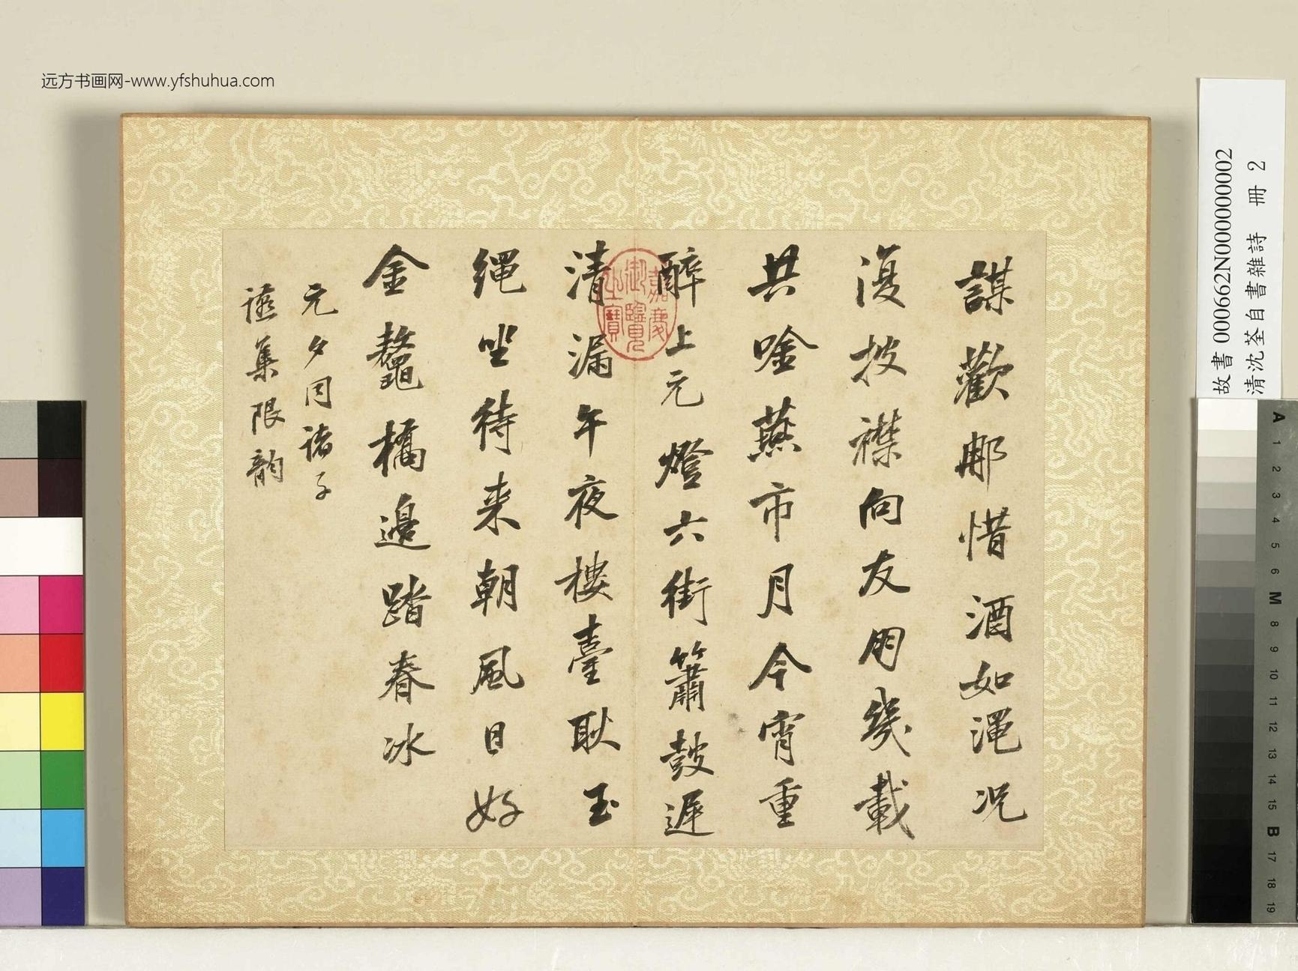 远方书画网-www.yfshuhua.com
謀歡那惜酒如澠況
復披襟向友朋幾載
共唫燕市月今宵重
醉上元燈六街簫鼓遲
清漏午夜樓臺耿玉
繩坐待来朝風日好
金鼇橋邊踏春冰
元夕同諸子
讌集限韵
嘉慶
御覽
之寶
故書 000662N000000002
清沈荃自書雜詩 冊 2
A 1 2 3 4 5 6 M 8 9 10 11 12 13 14 15 B 17 18 19